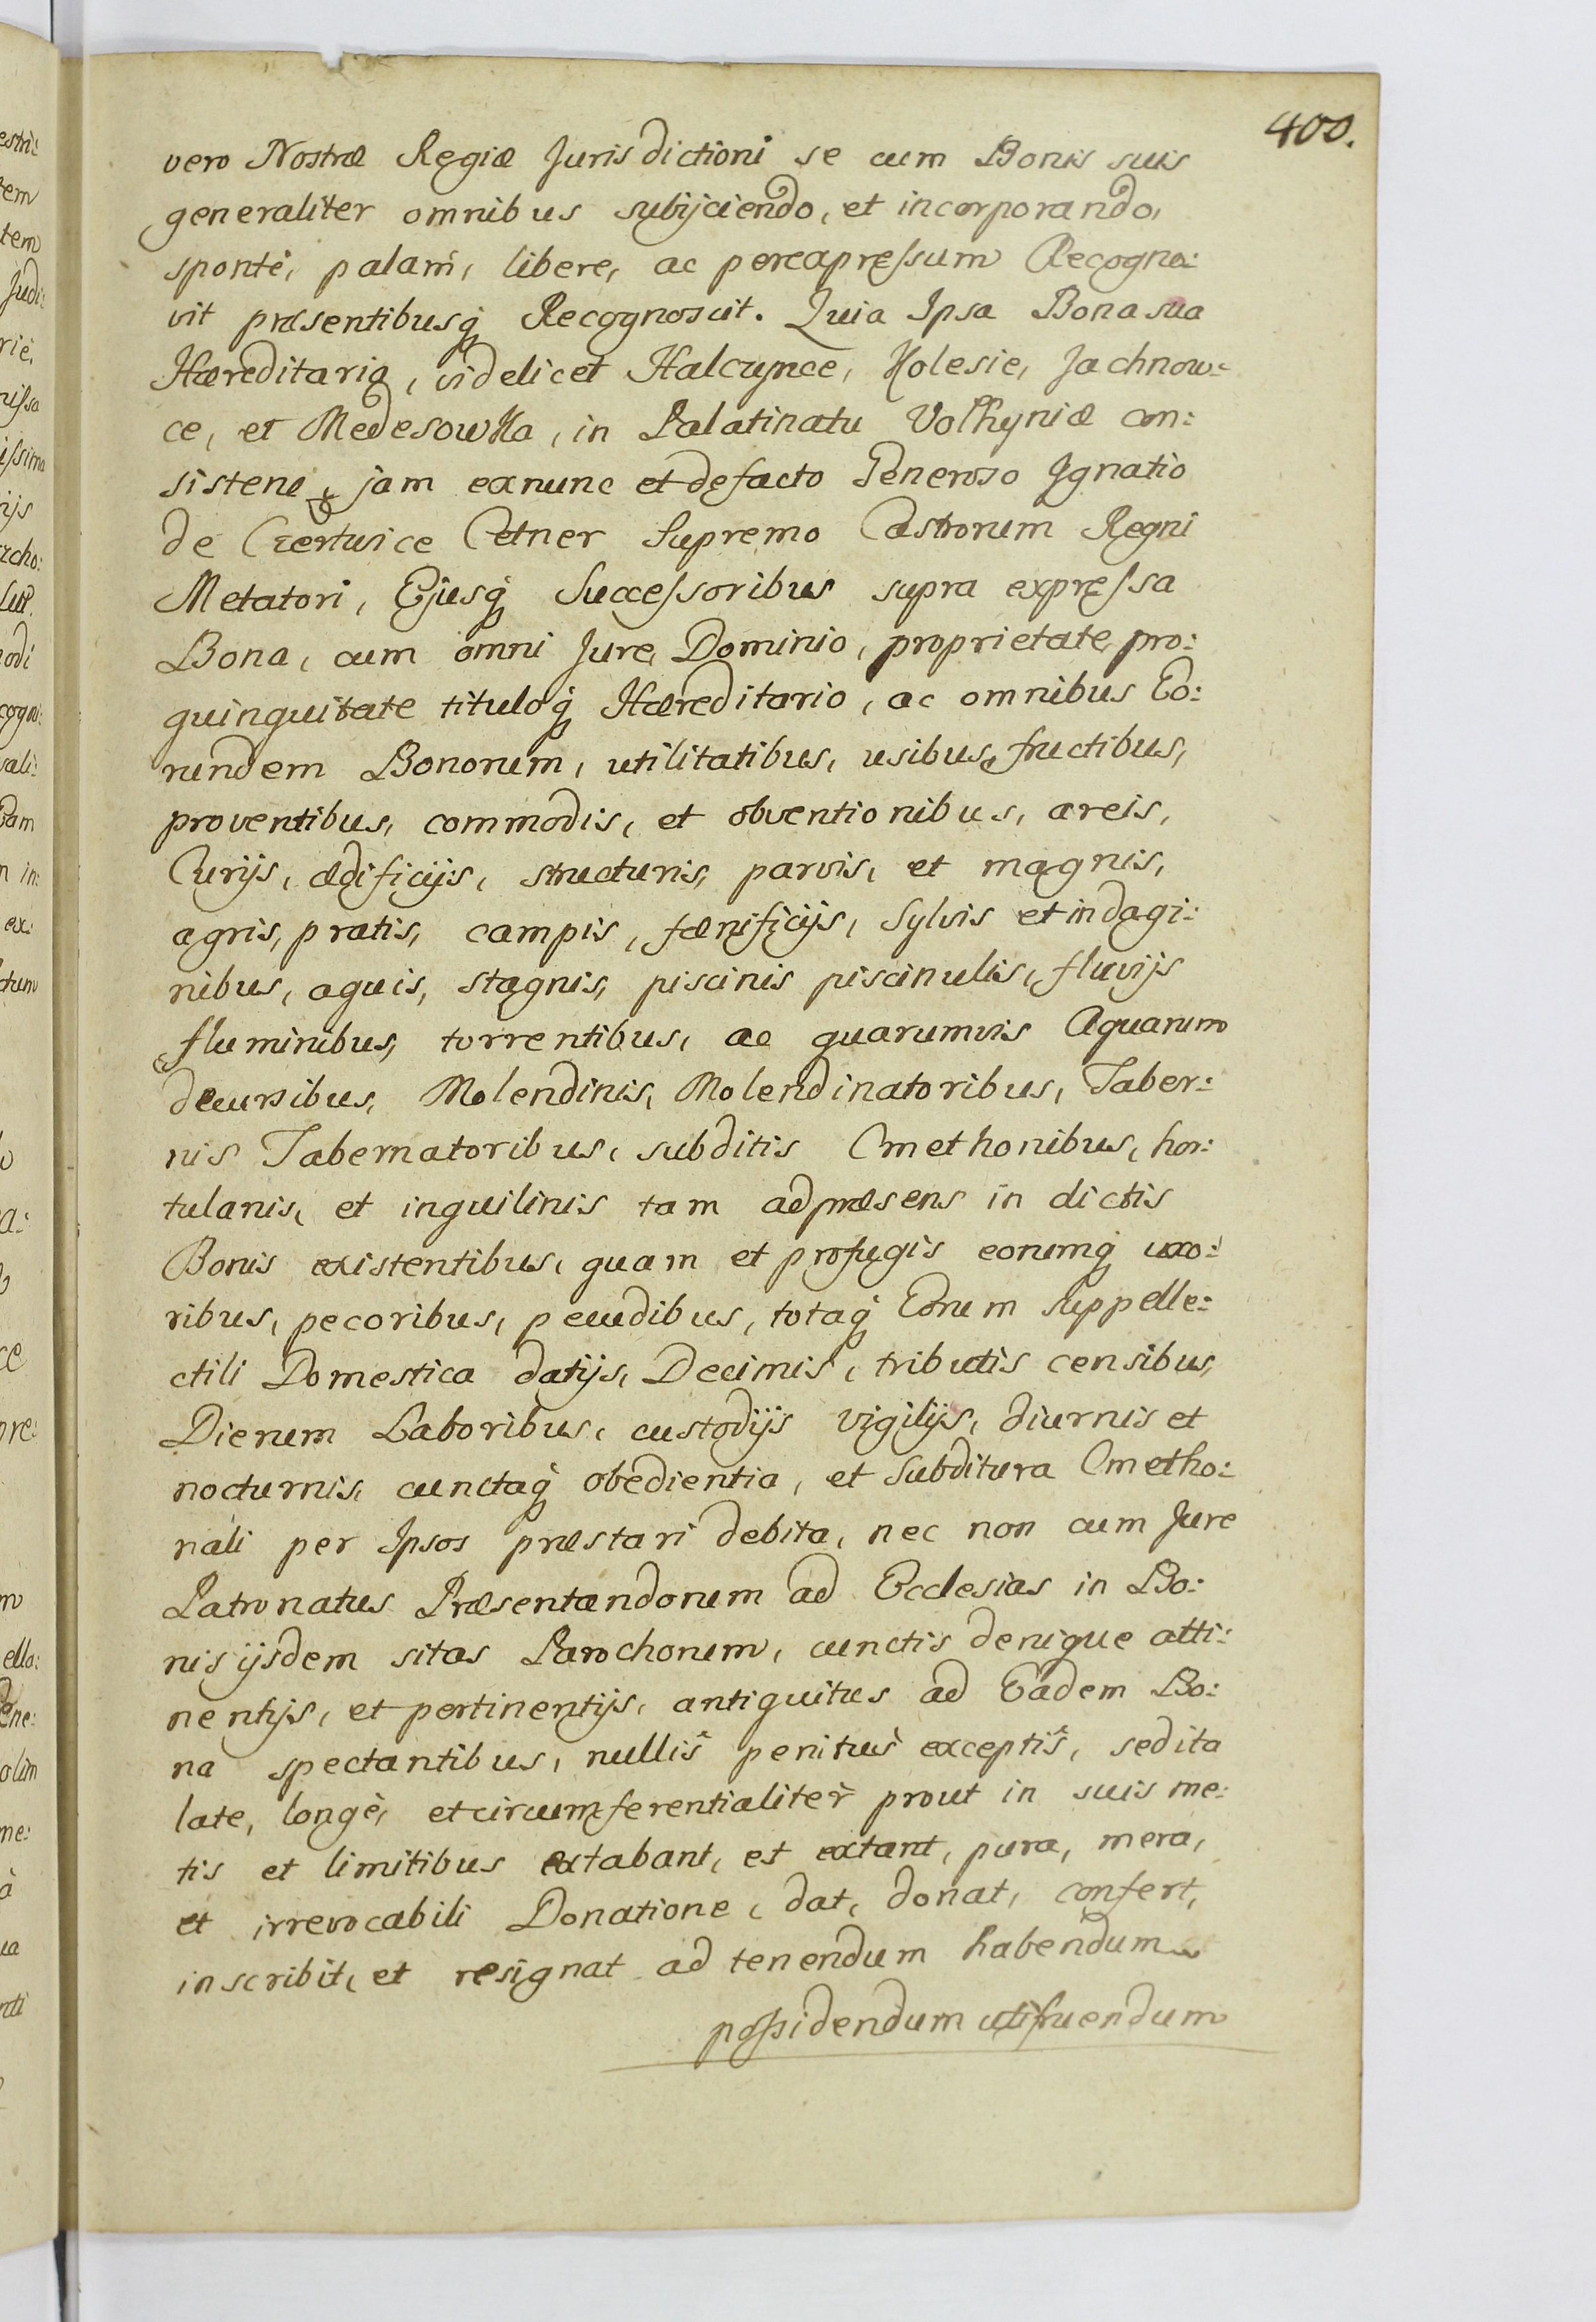 400.
vero Nostræ Regiæ Jurisdictioni se cum Bonis suis
generaliter omnibus subijciendo, et incorporando,
sponte, palam, libere, ac perexpressum Recogno:
vit præsentibusq; Recognoscit. Quia Ipsa Bona sua
Hæreditaria, videlicet Halczynce, Holesie, Jachnow:
ce, et Medesowka, in Palatinatu Volhyniæ con:
sisten jam exnunc et defacto Generoso Ignatio
de Czertwice Cetner Supremo Castrorum Regni
Metatori, Ejusq; Successoribus supra expressa
Bona, cum omni Jure Dominio, proprietate, pro:
quinquitate tituloq; Hæreditario, ac omnibus Eo:
rundem Bonorum, utilitatibus, usibus, fructibus,
proventibus, commodis, et obventionibus, areis,
Curijs, ædificijs, structuris, parvis, et magnis,
agris, pratis, campis, fænificijs, Sylvis et indagi:
nibus, aquis, stagnis, piscinis piscinulis, fluvijs
fluminibus, torrentibus, ac quarumvis Aquarum
decursibus, Molendinis, Molendinatoribus, Taber:
nis Tabernatoribus, subditis Cmethonibus, hor:
tulanis, et inquilinis tam adpræsens in dictis
Bonis existentibus, quam et profugis eorumq; uxo:
ribus, pecoribus, pecudibus, totaq; Eorum suppelle:
ctili Domestica datijs, Decimis, tributis censibus,
Dierum Laboribus, custodijs vigilijs, diurnis et
nocturnis, cunctaq; obedientia, et Subditura Cmetho:
nali per Ipsos præstari debita, nec non cum Jure
Patronatus Præsentandorum ad Ecclesias in Bo:
nis ijsdem sitas Parochorum, cunctis denique atti:
nentijs, et pertinentijs, antiquitus ad Eadem Bo:
na spectantibus, nullis penitus exceptis, sed ita
late, longè, et circumferentialiter prout in suis me:
tis et limitibus extabant, et extant, pura, mera,
et irrevocabili Donatione, dat, donat, confert,
inscribit, et resignat ad tenendum habendum
possidendum utifruendum